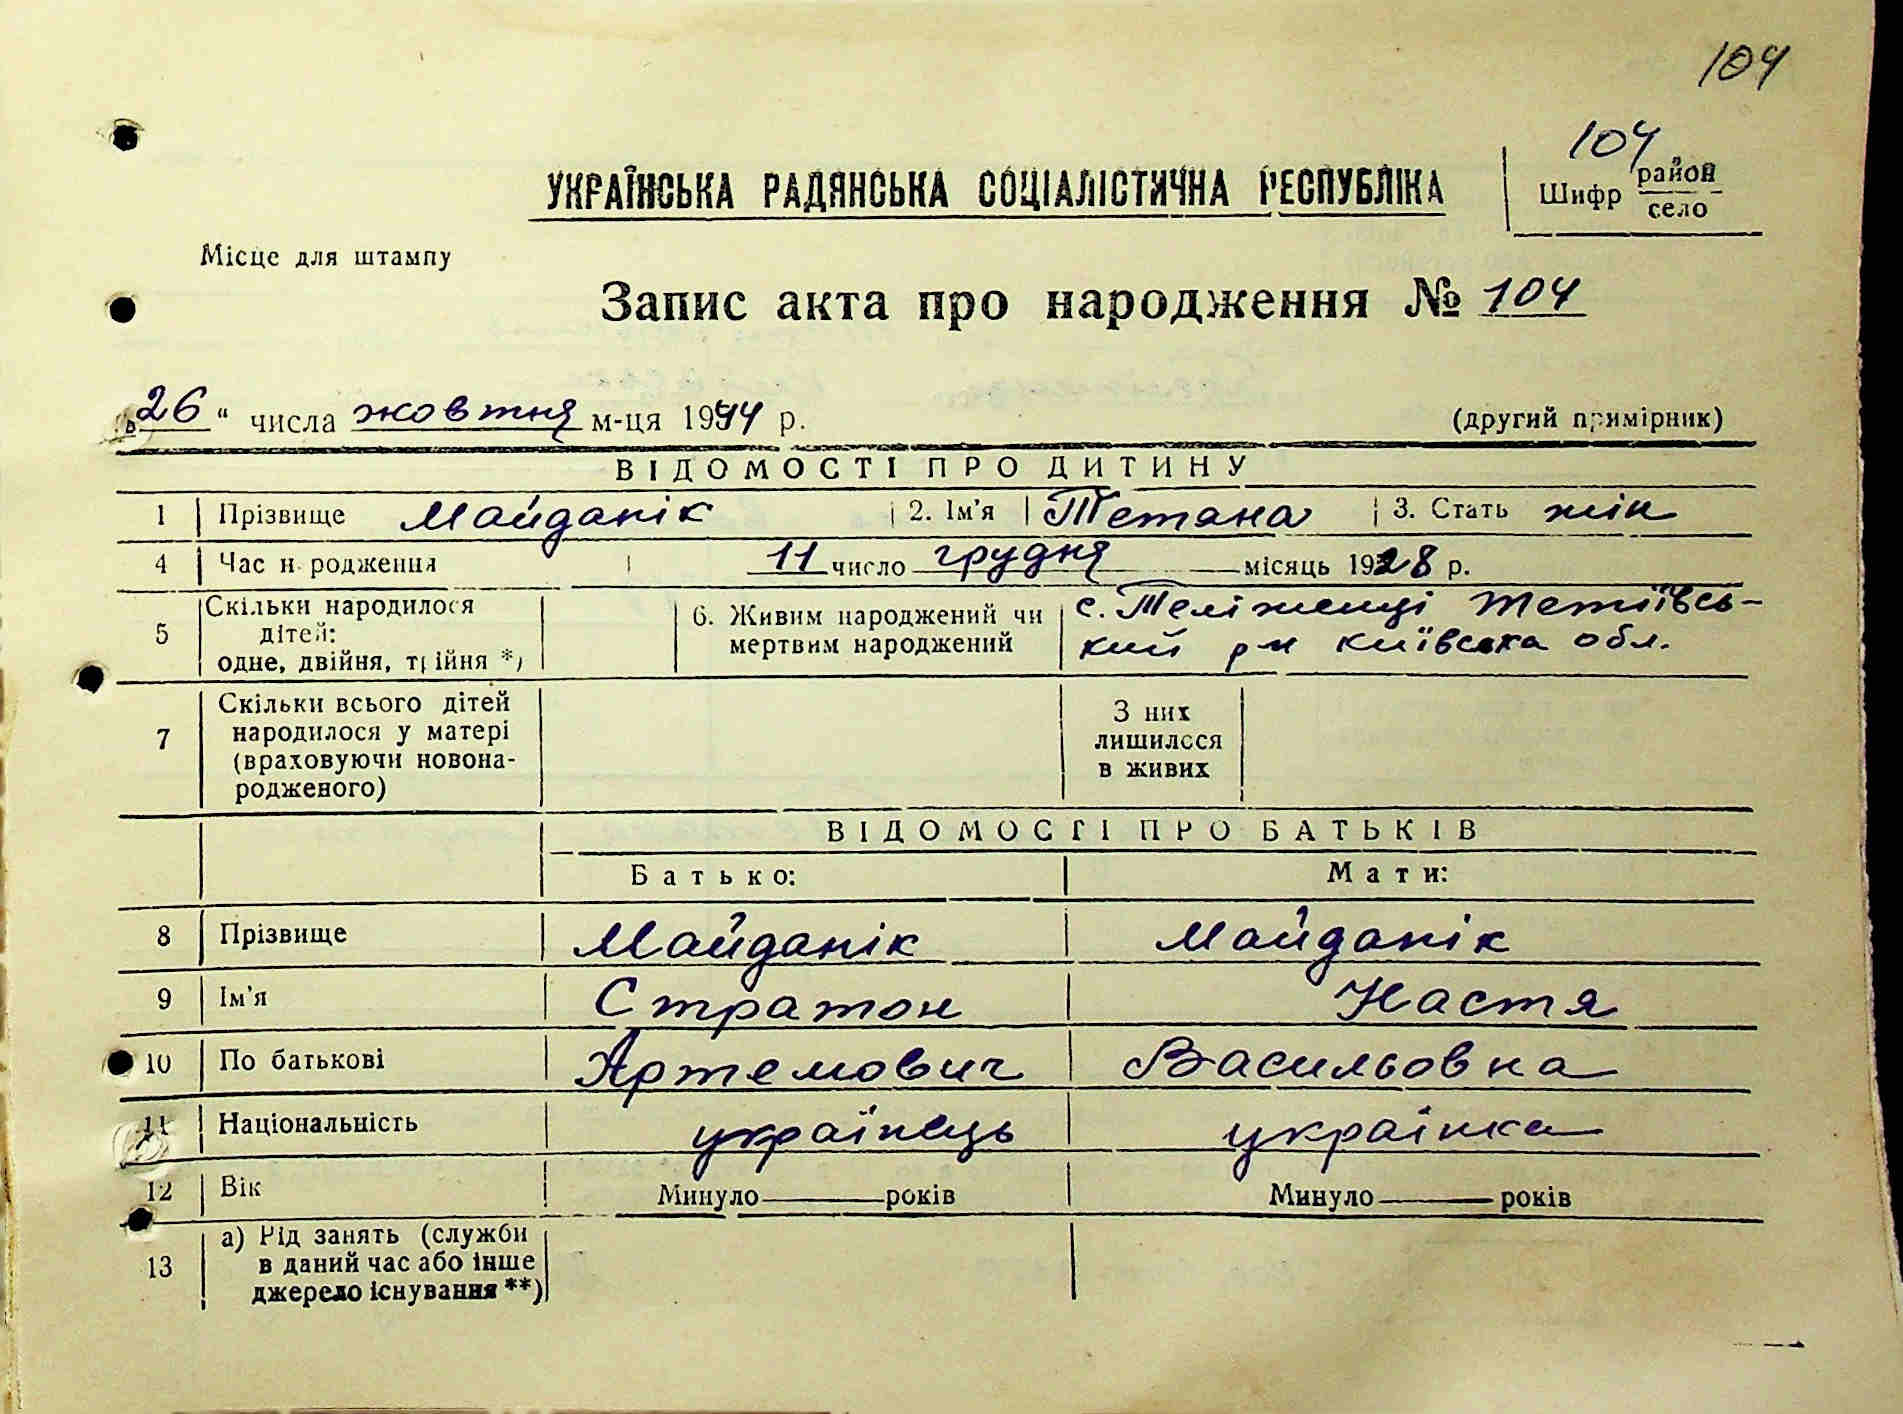 104
104
УКРАЇНСЬКА РАДЯНСЬКА СОЦІАЛІСТИЧНА РЕСПУБЛІКА
Шифр район
село
Місце для штампу
Запис акта про народження № 104
„26“ числа жовтня м-ця 1944 р.
(другий примірник)
ВІДОМОСТІ ПРО ДИТИНУ
1 Прізвище Майданік 2. Ім'я Тетана 3. Стать жін
4 Час народження 11 число грудня місяць 1928 р.
5 Скільки народилося дітей: одне, двійня, трійня *)
6. Живим народжений чи мертвим народжений
с. Теліженці Тетіївсь-
кий р-н Київська обл.
7 Скільки всього дітей
народилося у матері
(враховуючи новона-
родженого)
З них
лишилося
в живих
ВІДОМОСТІ ПРО БАТЬКІВ
Батько: Мати:
8 Прізвище Майданік Майданік
9 Ім'я Стратон Настя
10 По батькові Артемович Васильовна
11 Національність українець українка
12 Вік Минуло років Минуло років
13 а) Рід занять (служби
в даний час або інше
джерело існування **)